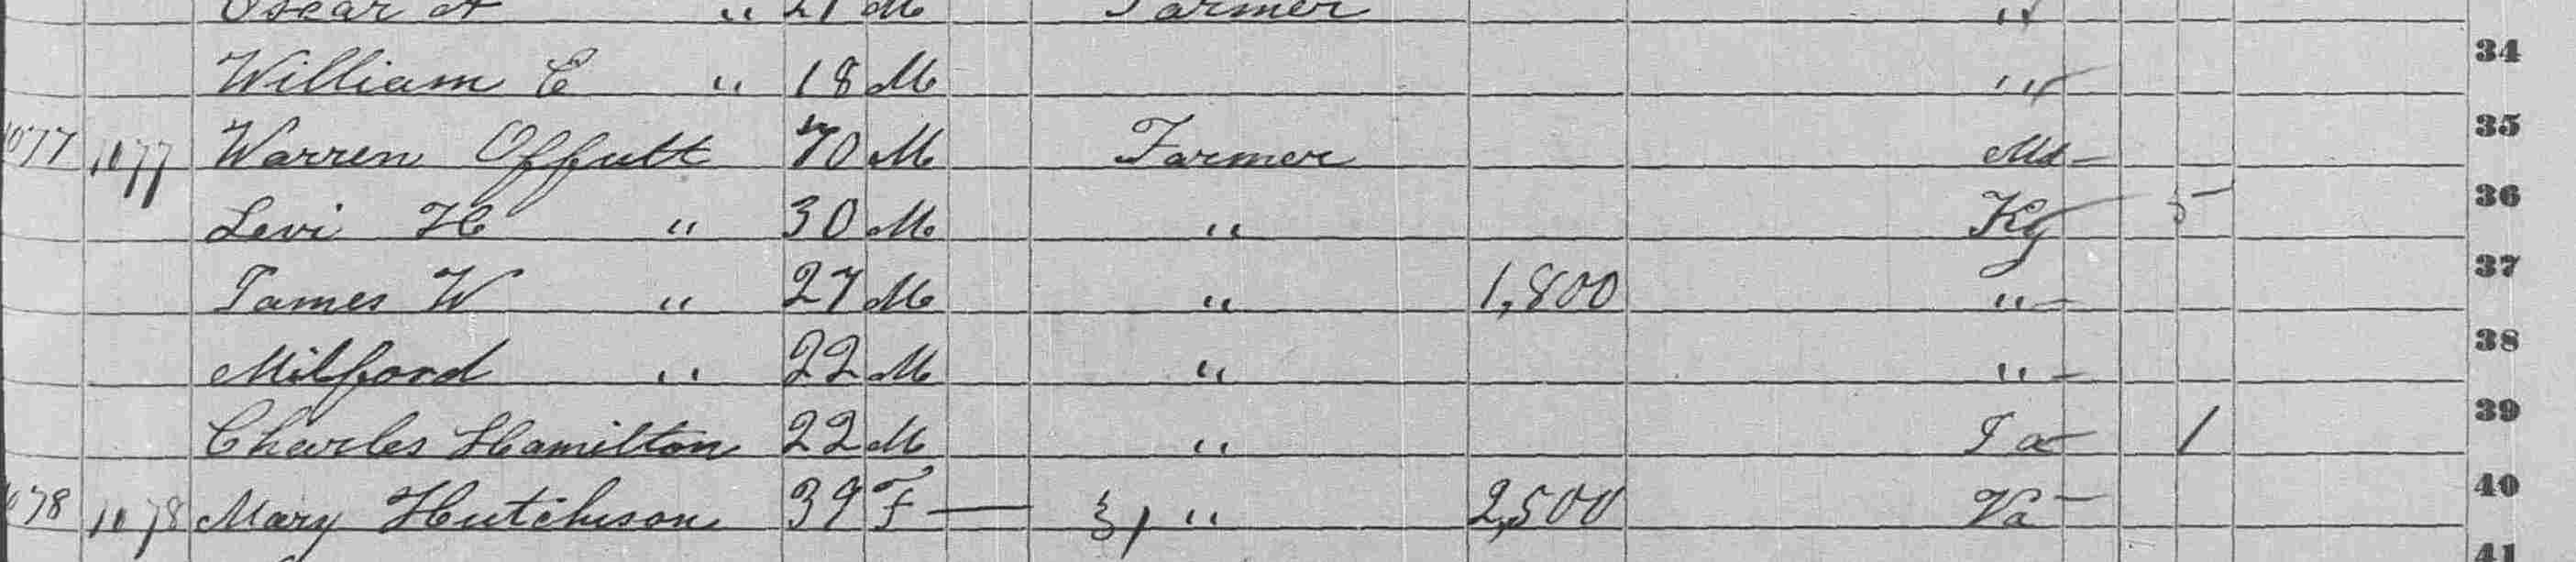 Oscar A " 21 M Farmer "
William C " 18 M " 34
1077 1077 Warren Offutt 70 M Farmer Md 35
Levi H " 30 M " Ky 5 36
James W " 27 M " 1,800 " 37
Milford " 22 M " " 38
Charles Hamilton 22 M " Ia 1 39
1078 1078 Mary Hutchison 39 F 31 " 2,500 Va 40
41